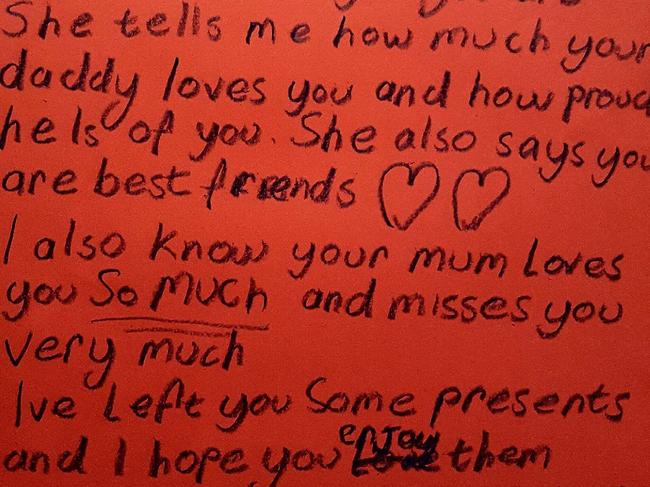 She tells me how much your
daddy loves you and how proud
he Is of you. She also says you
are best friends
I also know your mum Loves
you So MUCH and misses you
very much
Ive Left you Some presents
and I hope you enJoy them